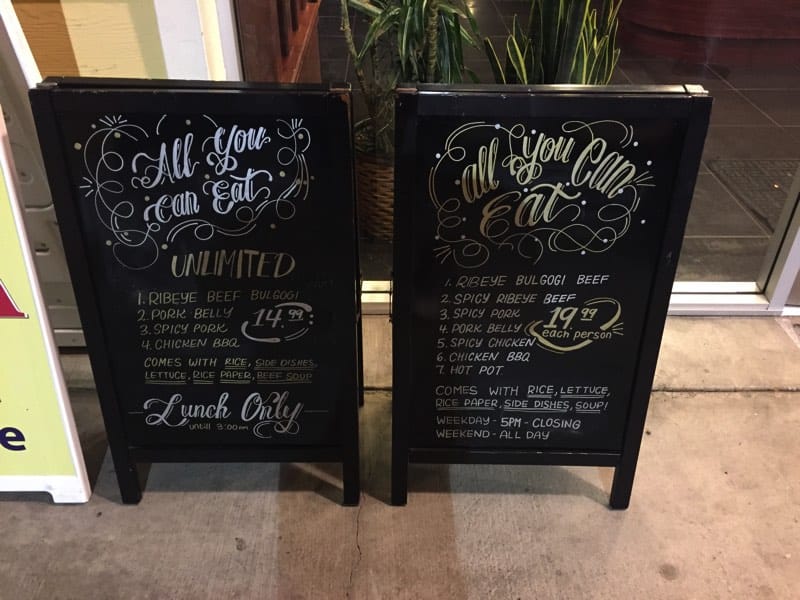 All You
Can Eat
UNLIMITED
1. RIBEYE BEEF BULGOGI
2. PORK BELLY
3. SPICY PORK
4. CHICKEN BBQ
14.99
COMES WITH RICE, SIDE DISHES,
LETTUCE, RICE PAPER, BEEF SOUP
Lunch Only
untill 3:00pm
all You Can
Eat
1. RIBEYE BULGOGI BEEF
2. SPICY RIBEYE BEEF
3. SPICY PORK
4. PORK BELLY
5. SPICY CHICKEN
6. CHICKEN BBQ
7. HOT POT
19.99
each person
COMES WITH RICE, LETTUCE,
RICE PAPER, SIDE DISHES, SOUP!
WEEKDAY - 5PM - CLOSING
WEEKEND - ALL DAY
e